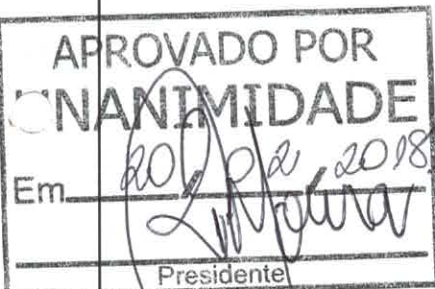 APROVADO POR
UNANIMIDADE
Em 20 02 2018
Presidente